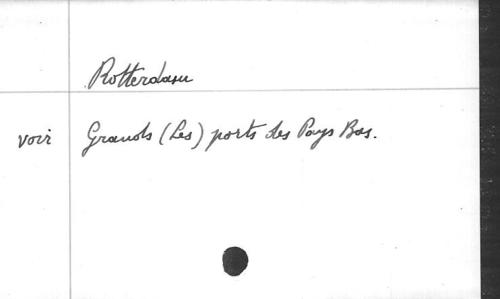 Rotterdam
voir Grands (Les) ports des Pays Bas.